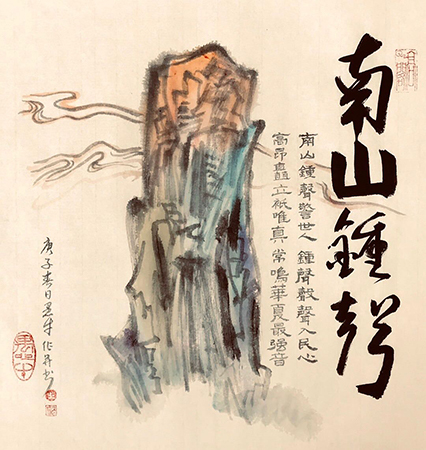 南山鍾聲
南山鍾聲警世人 鍾聲聲入民心
高昂矗立祇唯真 常鳴華夏最强音
庚子春日牛作并书